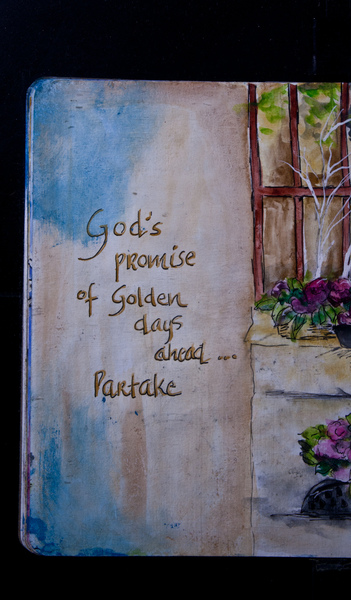 God's
promise
of Golden
days
ahead ...
Partake